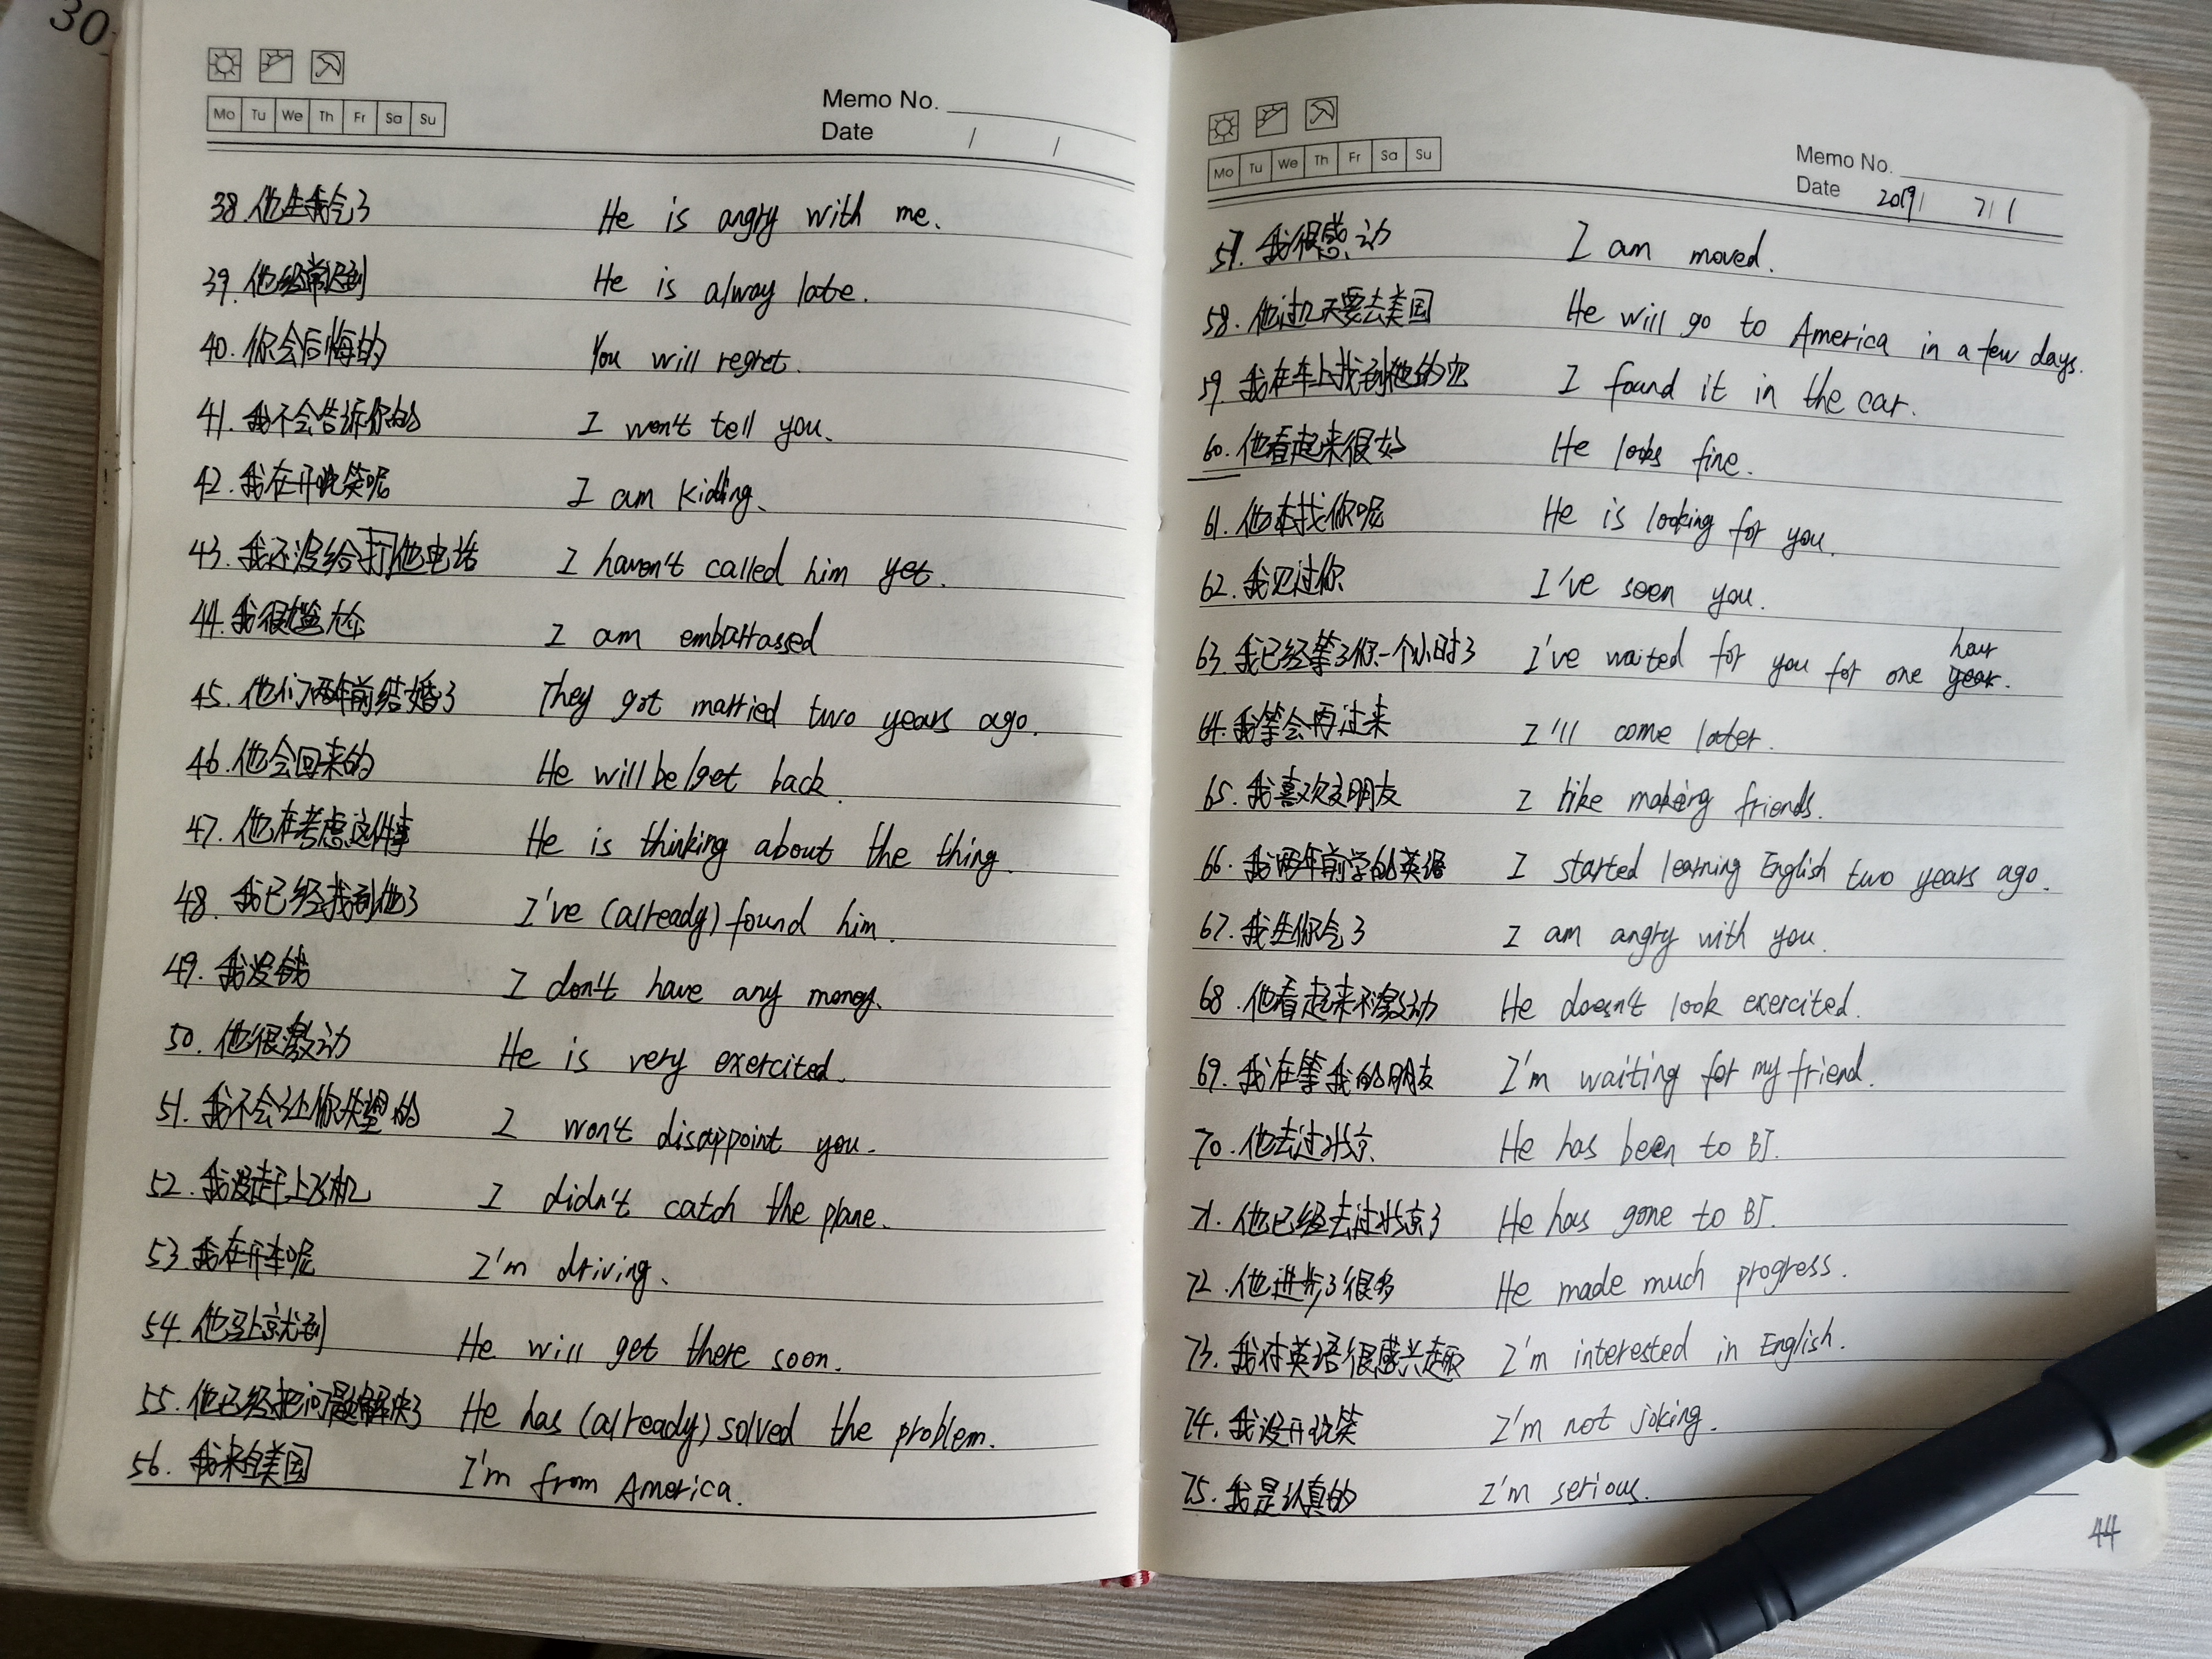 30
Mo Tu We Th Fr Sa Su
Memo No.
Date / /
38 他生我气了 He is angry with me.
39. 他经常迟到 He is alway late.
40. 你会后悔的 You will regret.
41. 我不会告诉你的 I won't tell you.
42. 我在开玩笑呢 I am kidding.
43. 我还没给打他电话 I haven't called him yet.
44. 我很尴尬 I am embarrassed
45. 他们两年前结婚了 They got married two years ago.
46. 他会回来的 He will be/get back.
47. 他在考虑这件事 He is thinking about the thing.
48. 我已经找到他了 I've (already) found him.
49. 我没钱 I don't have any money.
50. 他很激动 He is very exercited.
51. 我不会让你失望的 I won't disappoint you.
52. 我没赶上飞机 I didn't catch the plane.
53 我在开车呢 I'm driving.
54. 他马上就到 He will get there soon.
55. 他已经把问题解决了 He has (already) solved the problem.
56. 我来自美国 I'm from America.
Mo Tu We Th Fr Sa Su
Memo No.
Date 2019/ 7/1
57. 我很感动 I am moved.
58. 他过几天要去美国 He will go to America in a few days.
59 我在车上找到他的 I found it in the car.
60. 他看起来很好 He looks fine.
61. 他在找你呢 He is looking for you.
62. 我见过你 I've seen you.
63. 我已经等了你一个小时了 I've waited for you for one hour year.
64. 我等会再过来 I'll come later.
65. 我喜欢交朋友 I like making friends.
66. 我两年前学的英语 I started learning English two years ago.
67. 我生你气了 I am angry with you.
68. 他看起来不激动 He doesn't look exercited.
69. 我在等我的朋友 I'm waiting for my friend.
70. 他去过北京. He has been to BJ.
71. 他已经去过北京了 He has gone to BJ.
72. 他进步了很多 He made much progress.
73. 我对英语很感兴趣 I'm interested in English.
74. 我没开玩笑 I'm not joking.
75. 我是认真的 I'm serious.
44